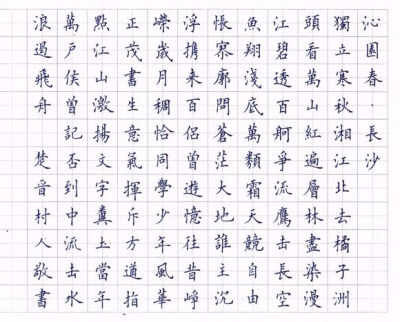 沁園春·長沙
獨立寒秋湘江北去橘子洲
頭看萬山紅遍層林盡染漫
江碧透百舸爭流鷹击長空
魚翔淺底萬類霜天競自由
悵寥廓問蒼茫大地誰主沉
浮携来百侣曾遊憶往昔崢
嶸歲月稠恰同學少年風華
正茂書生意氣揮斥方遒指
點江山激揚文字糞土當年
萬戶侯曾記否到中流击水
浪遏飛舟 楚音村人敬書